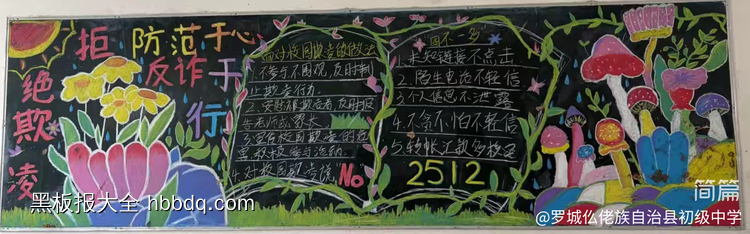 拒绝欺凌
防范于心
反诈于行
面对校园欺凌的做法
1.不参与不围观,及时制
止欺凌行为.
2.安慰被欺凌者,及时报
告老师或家长
4.对校园欺凌说"No"
四不一多
1.未知链接不点击
2.陌生电话不轻信
3.个人信息不泄露
4.不贪不怕不轻信
5.转帐汇款多核实
2512
简篇
黑板报大全 hbbdq.com
@罗城仫佬族自治县初级中学